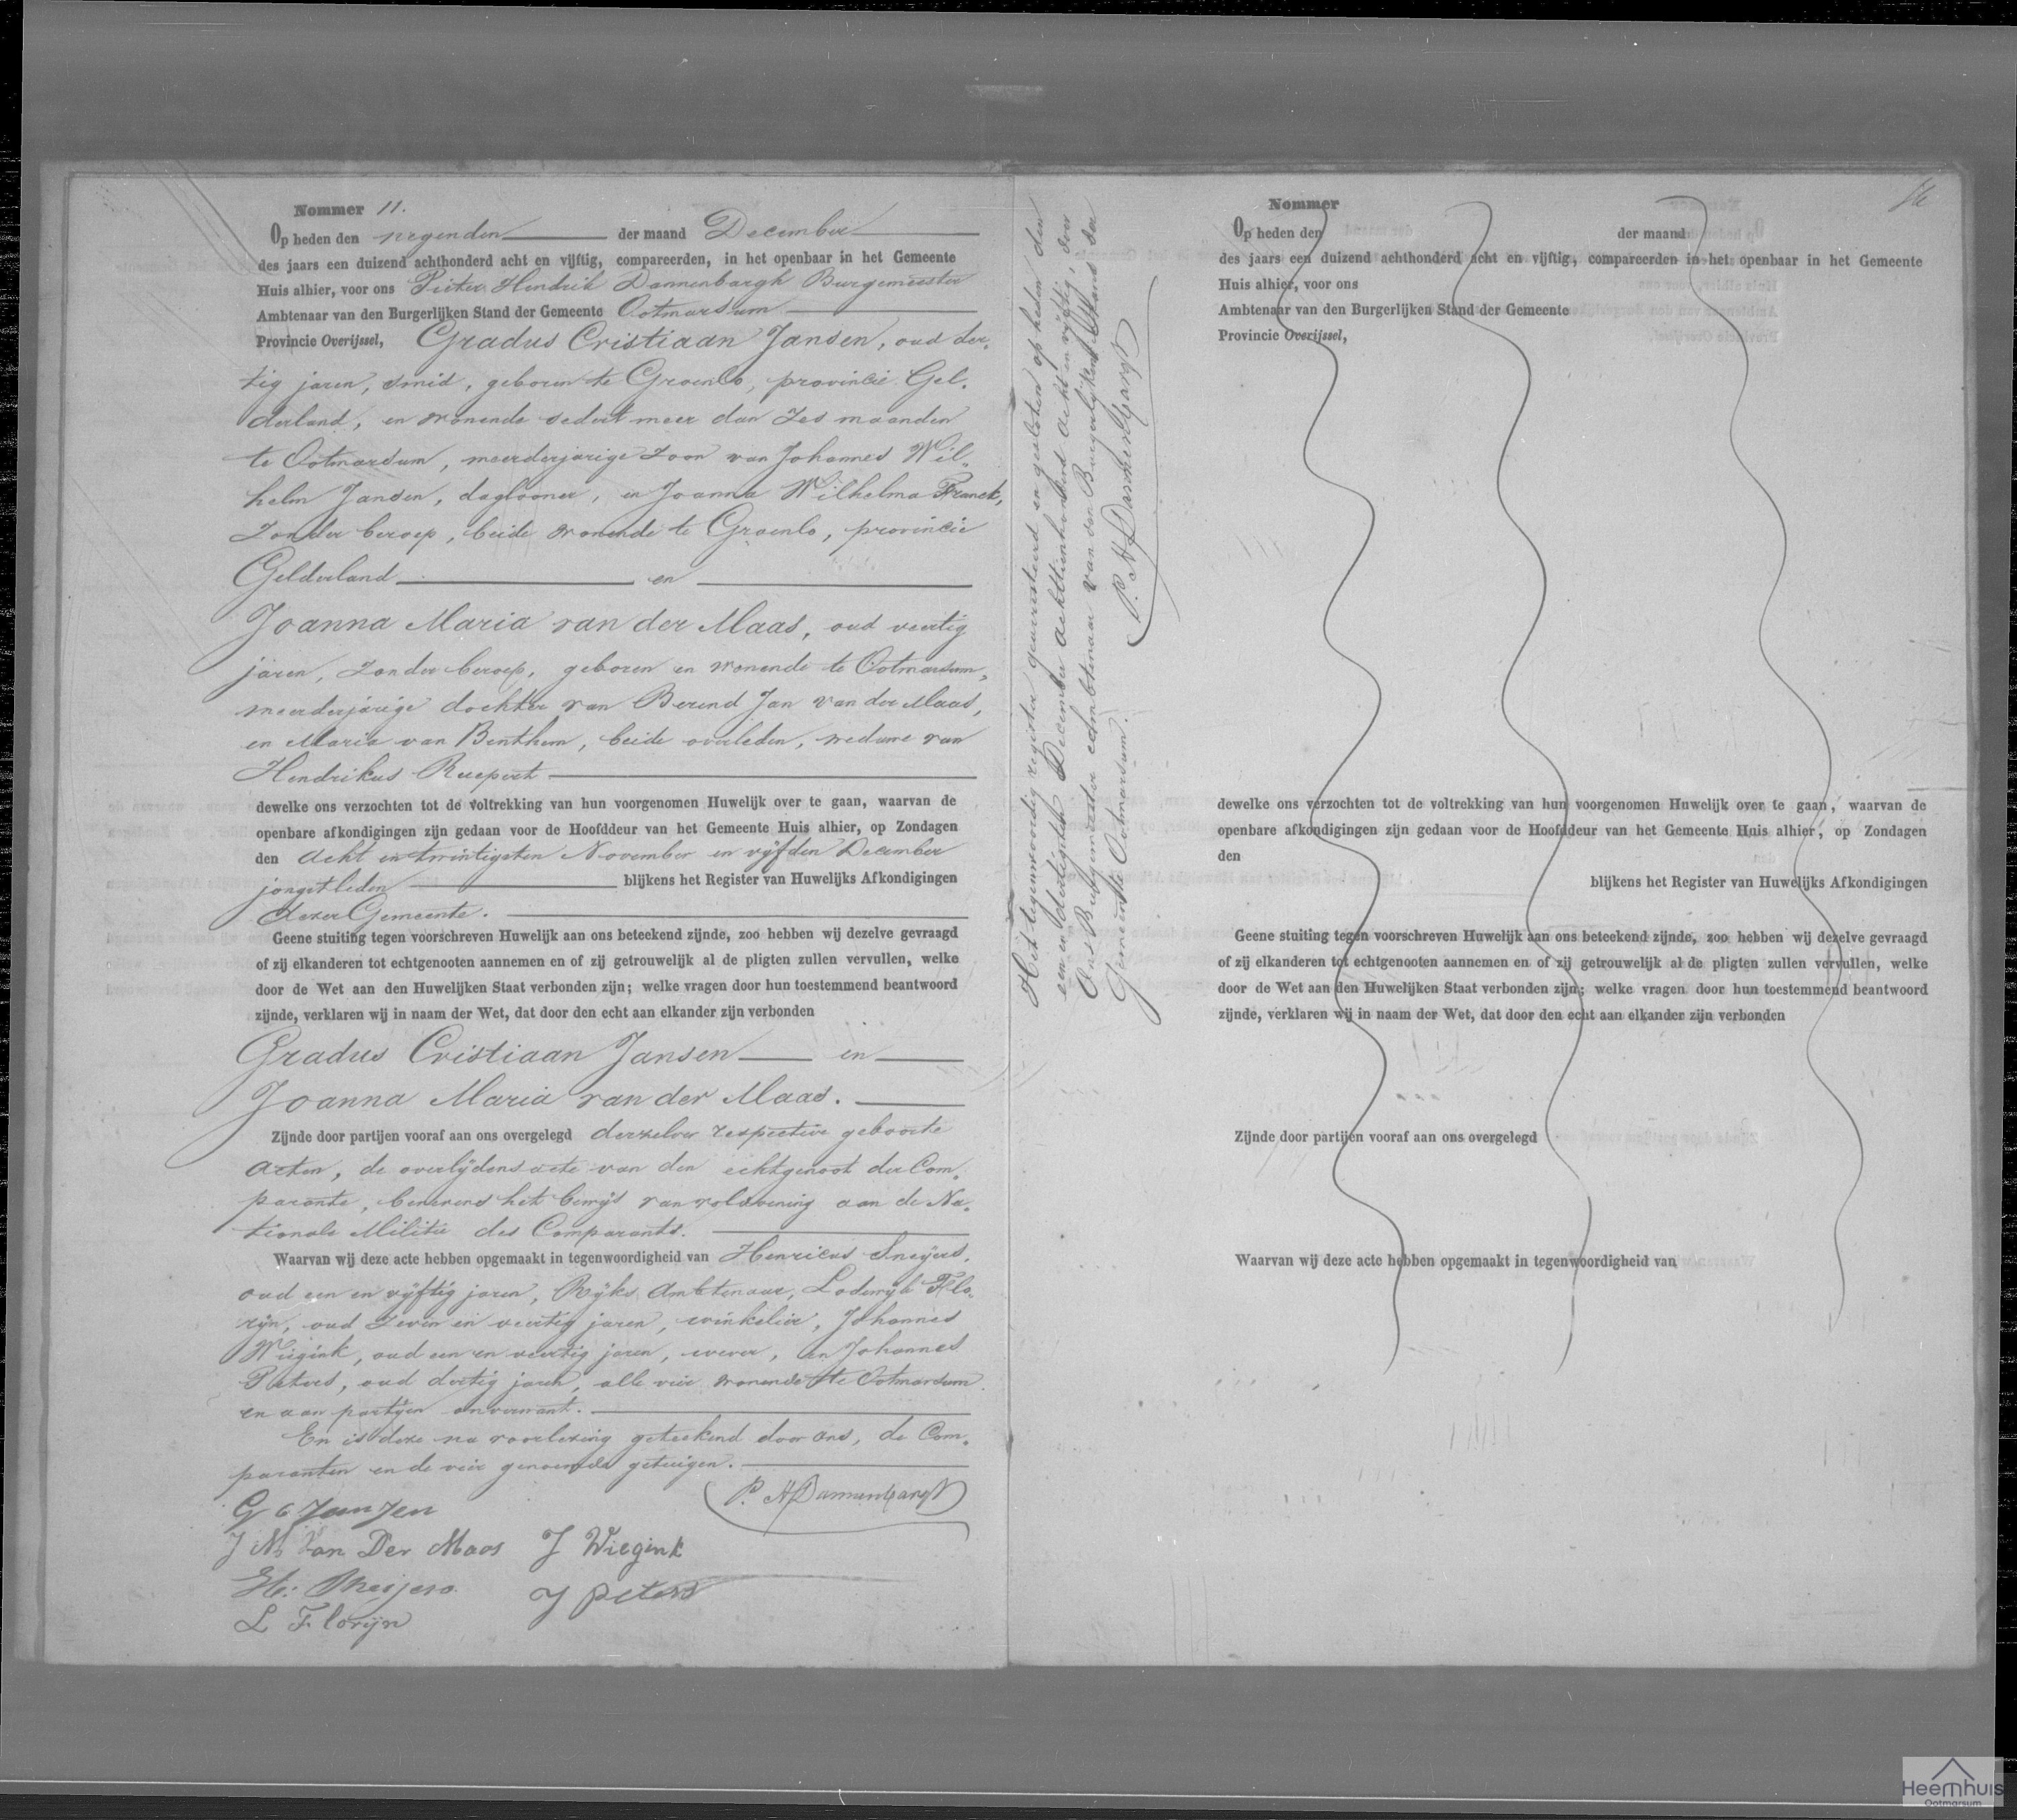 Nommer 11.
Op heden den negenden der maand December
des jaars een duizend achthonderd acht en vijftig, compareerden, in het openbaar in het Gemeente
Huis alhier, voor ons Pieter Hendrik Dannenbargh Burgemeester
Ambtenaar van den Burgerlijken Stand der Gemeente Ootmarsum
Provincie Overijssel, Gradus Cristiaan Jansen, oud der-
tig jaren, smid, geboren te Groenlo, provincie Gel-
derland, en wonende sedert meer dan zes maanden
te Ootmarsum, meerderjarige zoon van Johannes Wil-
helm Jansen, daglooner, en Joanna Wilhelma Franck,
zonder beroep, beide wonende te Groenlo, provincie
Gelderland en
Joanna Maria van der Maas, oud veertig
jaren, zonder beroep, geboren en wonende te Ootmarsum,
meerderjarige dochter van Berend Jan van der Maas,
en Maria van Benthem, beide overleden, weduwe van
Hendrikus Ruepert
dewelke ons verzochten tot de voltrekking van hun voorgenomen Huwelijk over te gaan, waarvan de
openbare afkondigingen zijn gedaan voor de Hoofddeur van het Gemeente Huis alhier, op Zondagen
den acht en twintigsten November en vijfden December
jongstleden blijkens het Register van Huwelijks Afkondigingen
dezer Gemeente.
Geene stuiting tegen voorschreven Huwelijk aan ons beteekend zijnde, zoo hebben wij dezelve gevraagd
of zij elkanderen tot echtgenooten aannemen en of zij getrouwelijk al de pligten zullen vervullen, welke
door de Wet aan den Huwelijken Staat verbonden zijn; welke vragen door hun toestemmend beantwoord
zijnde, verklaren wij in naam der Wet, dat door den echt aan elkander zijn verbonden
Gradus Cristiaan Jansen en
Joanna Maria van der Maas.
Zijnde door partijen vooraf aan ons overgelegd derzelver respective geboorte
acten, de overlijdens acte van den echtgenoot der Com-
parante, benevens het bewijs van voldoening aan de Na-
tionale Militie des Comparants.
Waarvan wij deze acte hebben opgemaakt in tegenwoordigheid van Henricus Sneijers,
oud een en vijftig jaren, Rijks Ambtenaar, Lodewijk Flo-
rijn, oud zeven en veertig jaren, winkelier, Johannes
Wiegink, oud een en veertig jaren, wever, en Johannes
Peters, oud dertig jaren, alle vier wonende te Ootmarsum
en aan partijen onverwant.
En is deze na voorlezing geteekend door ons, de Com-
paranten en de vier genoemde getuigen.
G C Janssen P. H Dannenbargh
J M Van Der Maas J Wiegink
H: Sneijers J Peters
L Florijn
Het tegenwoordig register gearresteerd en gesloten op heden den
een en dertigsten December achttienhonderd acht en vijftig, door
Ons Burgemeester Ambtenaar van den Burgerlijken Stand der
Gemeente Ootmarsum.
P. H Dannenbargh
Nommer
Op heden den der maand
des jaars een duizend achthonderd acht en vijftig, compareerden in het openbaar in het Gemeente
Huis alhier, voor ons
Ambtenaar van den Burgerlijken Stand der Gemeente
Provincie Overijssel,
dewelke ons verzochten tot de voltrekking van hun voorgenomen Huwelijk over te gaan, waarvan de
openbare afkondigingen zijn gedaan voor de Hoofddeur van het Gemeente Huis alhier, op Zondagen
den
blijkens het Register van Huwelijks Afkondigingen
Geene stuiting tegen voorschreven Huwelijk aan ons beteekend zijnde, zoo hebben wij dezelve gevraagd
of zij elkanderen tot echtgenooten aannemen en of zij getrouwelijk al de pligten zullen vervullen, welke
door de Wet aan den Huwelijken Staat verbonden zijn; welke vragen door hun toestemmend beantwoord
zijnde, verklaren wij in naam der Wet, dat door den echt aan elkander zijn verbonden
Zijnde door partijen vooraf aan ons overgelegd
Waarvan wij deze acte hebben opgemaakt in tegenwoordigheid van
Heemhuis
Ootmarsum